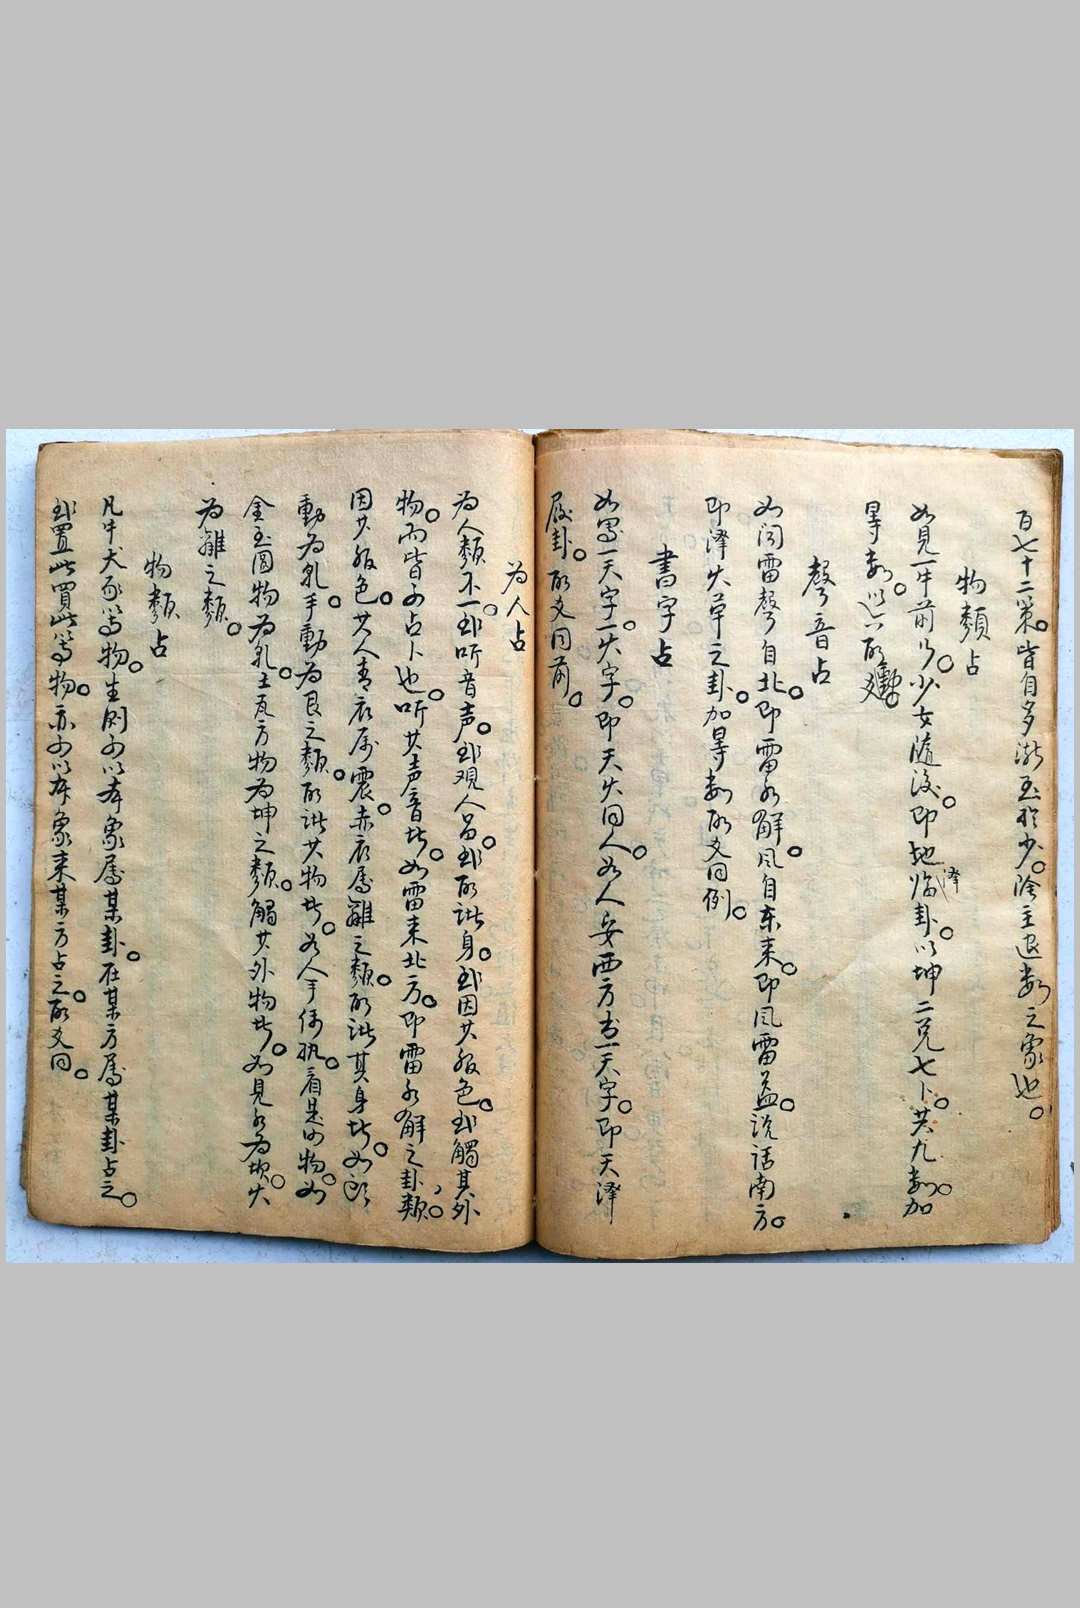 百七十二策。皆自多漸至於少。陰主退数之象也。
物類占
如見一牛前行。少女隨後。即地澤臨卦。以坤二兑七卜。共九数。加
時数。以六取動爻。
聲音占
如闻雷聲自北。即雷水解。風自东来。即風雷益。説话南方。
即澤火革之卦。加時数取爻同例。
書字占
如寫一天字。一火字。即天火同人。如人要西方书一天字。即天澤
履卦。取爻同前。
为人占
为人類不一。或听音声。或观人品。或取諸身。或因其服色。或觸其外
物。而皆可占卜也。听其声音者。如雷来北方。即雷水解之卦類。
因其服色。其人青衣属震。赤衣属離之類。取諸其身者。如頭
動为乹。手動为艮之類。取諸其物者。如人手僑执。看是何物。如
金玉圆物为乹。土瓦方物为坤之類。觸其外物者。如見水为坎。火
为離之類。
物類占
凡牛犬豕等物。生則可以本象属某卦。在某方属某卦占之。
或置此買此等物。亦可以本象来某方占之。取爻同。